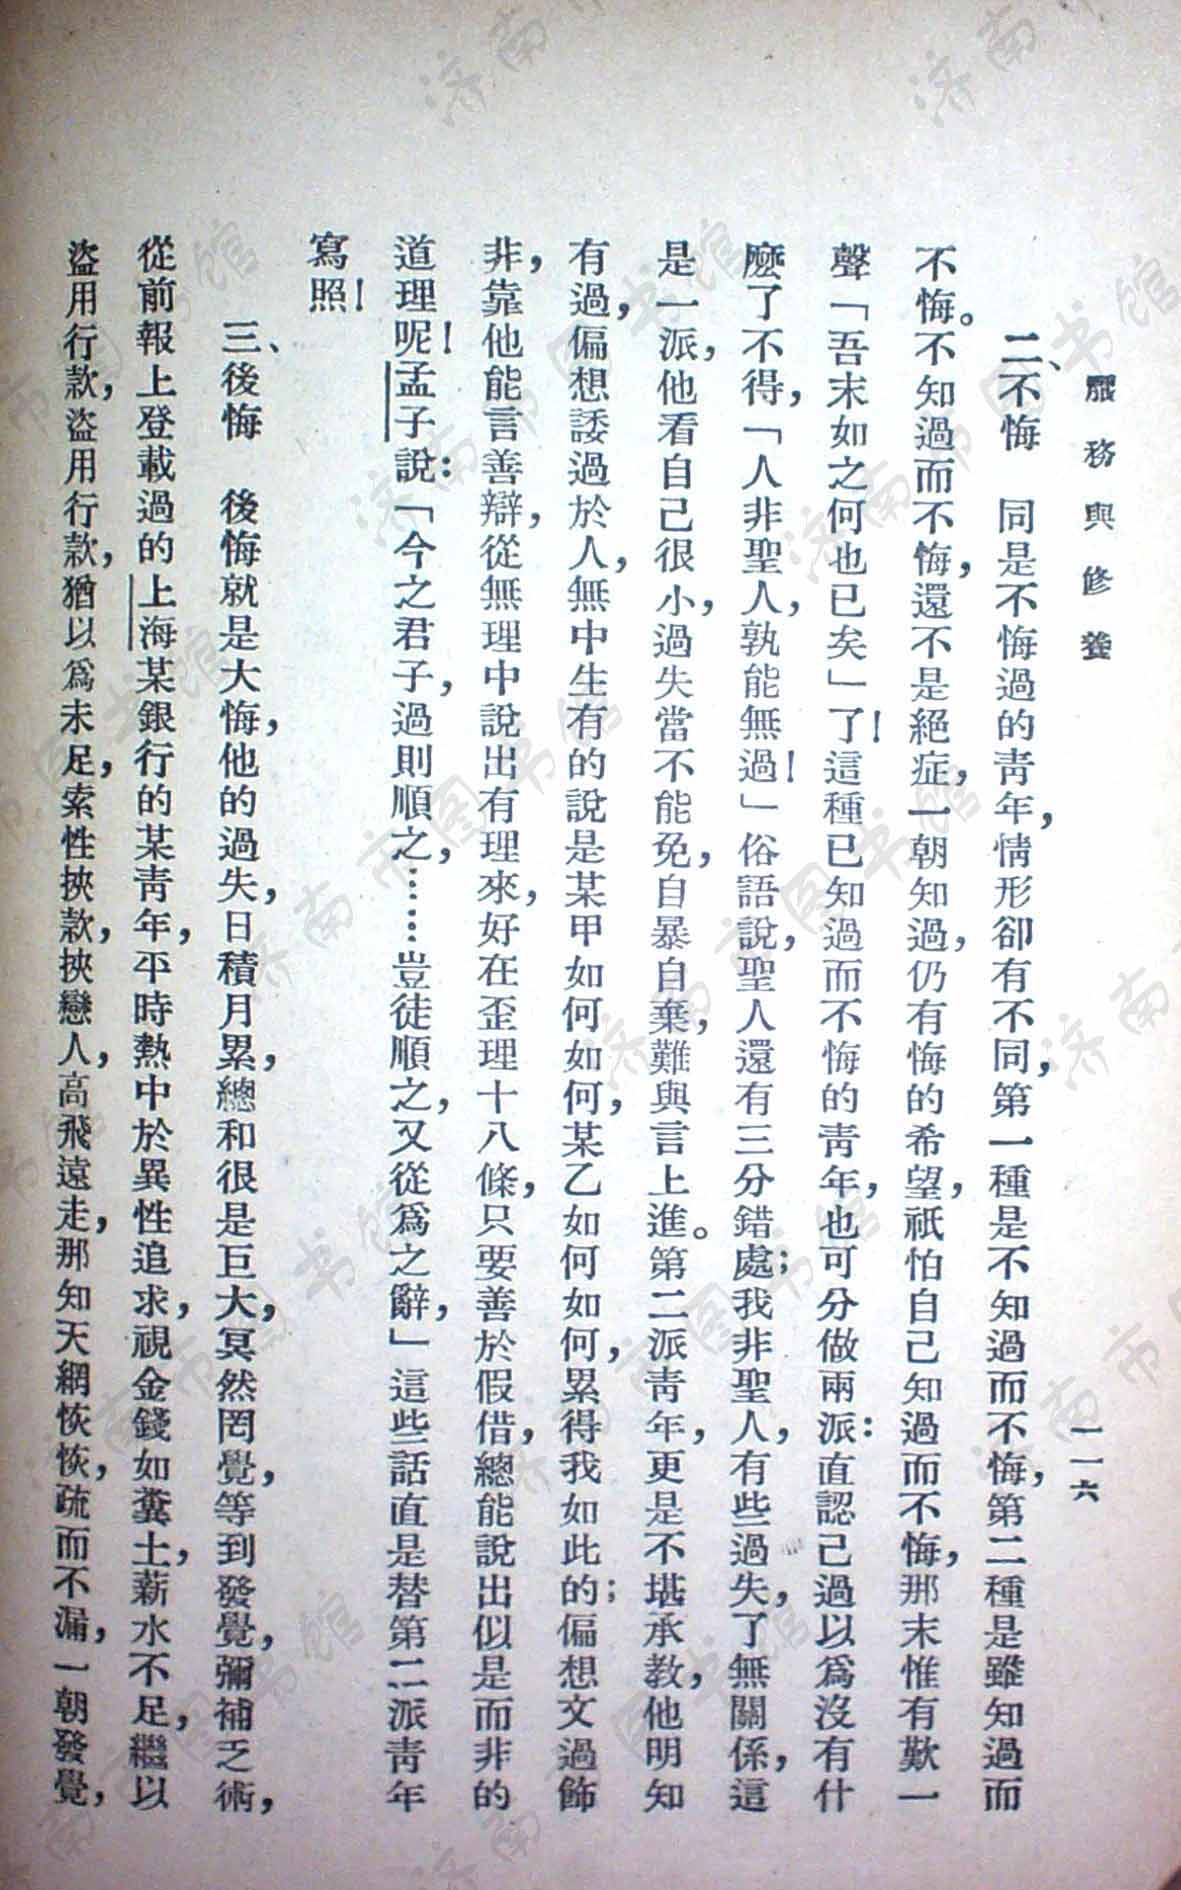 服務與修養
一一六
二、不悔　同是不悔過的靑年，情形卻有不同，第一種是不知過而不悔，第二種是雖知過而
不悔。不知過而不悔，還不是絕症，一朝知過，仍有悔的希望，祇怕自己知過而不悔，那末惟有歎一
聲「吾末如之何也已矣」了！這種已知過而不悔的靑年，也可分做兩派：直認己過以爲沒有什
麼了不得，「人非聖人，孰能無過！」俗語說，聖人還有三分錯處；我非聖人，有些過失，了無關係，這
是一派，他看自己很小，過失當不能免，自暴自棄，難與言上進。第二派靑年，更是不堪承教，他明知
有過，偏想諉過於人，無中生有的說是某甲如何如何，某乙如何如何，累得我如此的；偏想文過飾
非，靠他能言善辯，從無理中說出有理來，好在歪理十八條，只要善於假借，總能說出似是而非的
道理呢！孟子說：「今之君子，過則順之，……豈徒順之，又從爲之辭，」這些話直是替第二派靑年
寫照！
三、後悔　後悔就是大悔，他的過失，日積月累，總和很是巨大，冥然罔覺，等到發覺，彌補乏術，
從前報上登載過的上海某銀行的某靑年，平時熱中於異性追求，視金錢如糞土，薪水不足，繼以
盜用行款，盜用行款，猶以爲未足，索性挾款，挾戀人，高飛遠走，那知天網恢恢，疏而不漏，一朝發覺，
济南市图书馆